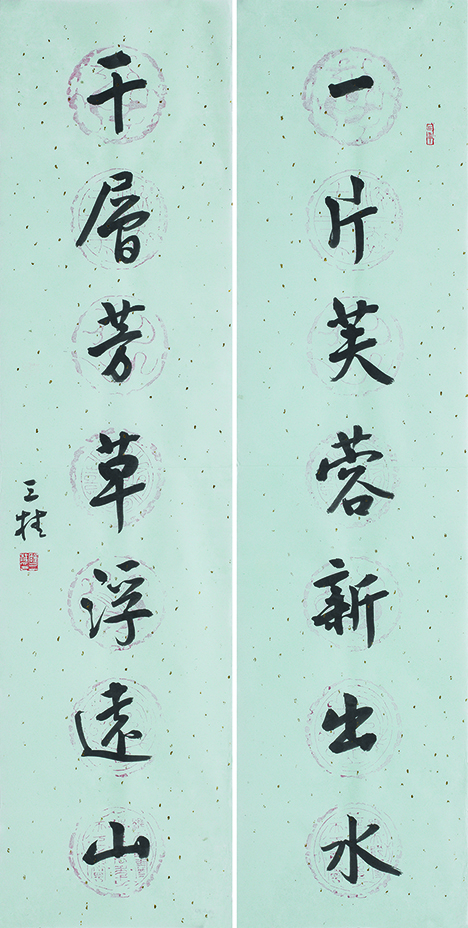 一片芙蓉新出水
千層芳草浮遠山